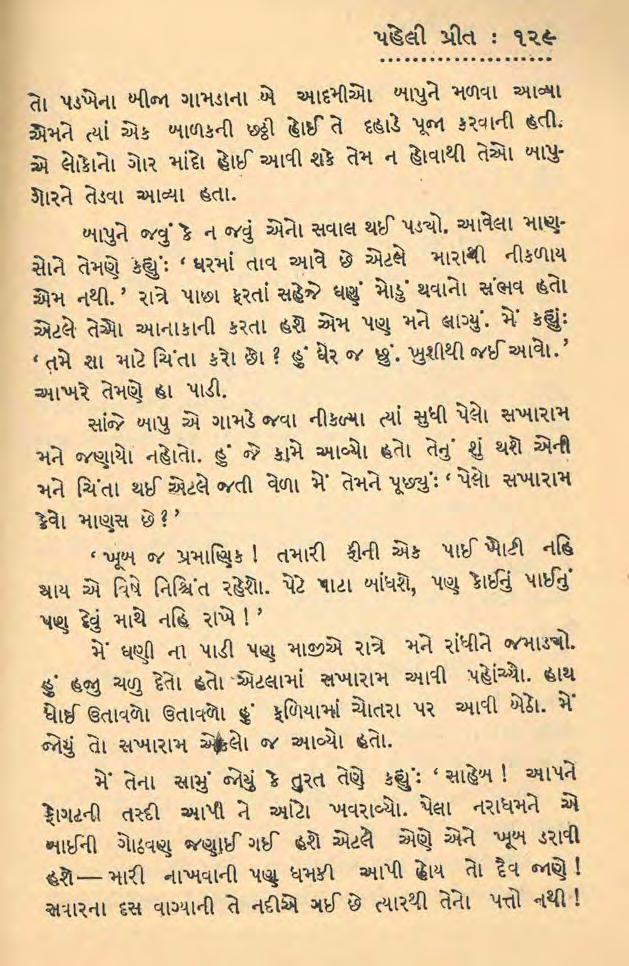 પહેલી પ્રીત : ૧૨૯
તો પડખેના બીજા ગામડાના બે આદમીઓ બાપુને મળવા આવ્યા
એમને ત્યાં એક બાળકની છઠ્ઠી હોઈ તે દહાડે પૂજા કરવાની હતી.
એ લોકોનો ગોર માંદો હોઈ આવી શકે તેમ ન હોવાથી તેઓ બાપુ-
ગોરને તેડવા આવ્યા હતા.
બાપુને જવું કે ન જવું એનો સવાલ થઈ પડ્યો. આવેલા માણ-
સોને તેમણે કહ્યું: ‘ ઘરમાં તાવ આવે છે એટલે મારાથી નીકળાય
એમ નથી. ’ રાત્રે પાછા ફરતાં સહેજે ઘણું મોડું થવાનો સંભવ હતો
એટલે તેઓ આનાકાની કરતા હશે એમ પણ મને લાગ્યું. મેં કહ્યું:
‘ તમે શા માટે ચિંતા કરો છો ? હું ઘેર જ છું. ખુશીથી જઈ આવો. ’
આખરે તેમણે હા પાડી.
સાંજે બાપુ એ ગામડે જવા નીકળ્યા ત્યાં સુધી પેલો સખારામ
મને જણાયો નહોતો. હું જે કામે આવ્યો હતો તેનું શું થશે એની
મને ચિંતા થઈ એટલે જતી વેળા મેં તેમને પૂછ્યું: ‘ પેલો સખારામ
કેવો માણસ છે ? ’
‘ ખૂબ જ પ્રમાણિક ! તમારી ફીની એક પાઈ ખોટી નહિ
થાય એ વિષે નિશ્ચિંત રહેશો. પેટે પાટા બાંધશે, પણ કોઈનું પાઈનું
પણ દેવું માથે નહિ રાખે ! ’
મેં ઘણી ના પાડી પણ માજીએ રાત્રે મને રાંધીને જમાડ્યો.
હું હજી ચળુ દેતો હતો એટલામાં સખારામ આવી પહોંચ્યો. હાથ
ધોઈ ઉતાવળો ઉતાવળો હું ફળિયામાં ચોતરા પર આવી બેઠો. મેં
જોયું તો સખારામ એકલો જ આવ્યો હતો.
મેં તેના સામું જોયું કે તુરત તેણે કહ્યું: ‘ સાહેબ ! આપને
ફોગટની તસ્દી આપી ને આંટો ખવરાવ્યો. પેલા નરાધમને એ
બાઈની ગોઠવણ જણાઈ ગઈ હશે એટલે એણે એને ખૂબ ડરાવી
હશે — મારી નાખવાની પણ ધમકી આપી હોય તો દૈવ જાણે !
સવારના દસ વાગ્યાની તે નદીએ ગઈ છે ત્યારથી તેનો પત્તો નથી !